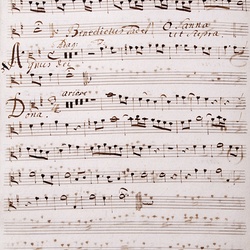 Benedictus tacet Osanna
ut supra
Adag:
Agnus Dei
Dona.